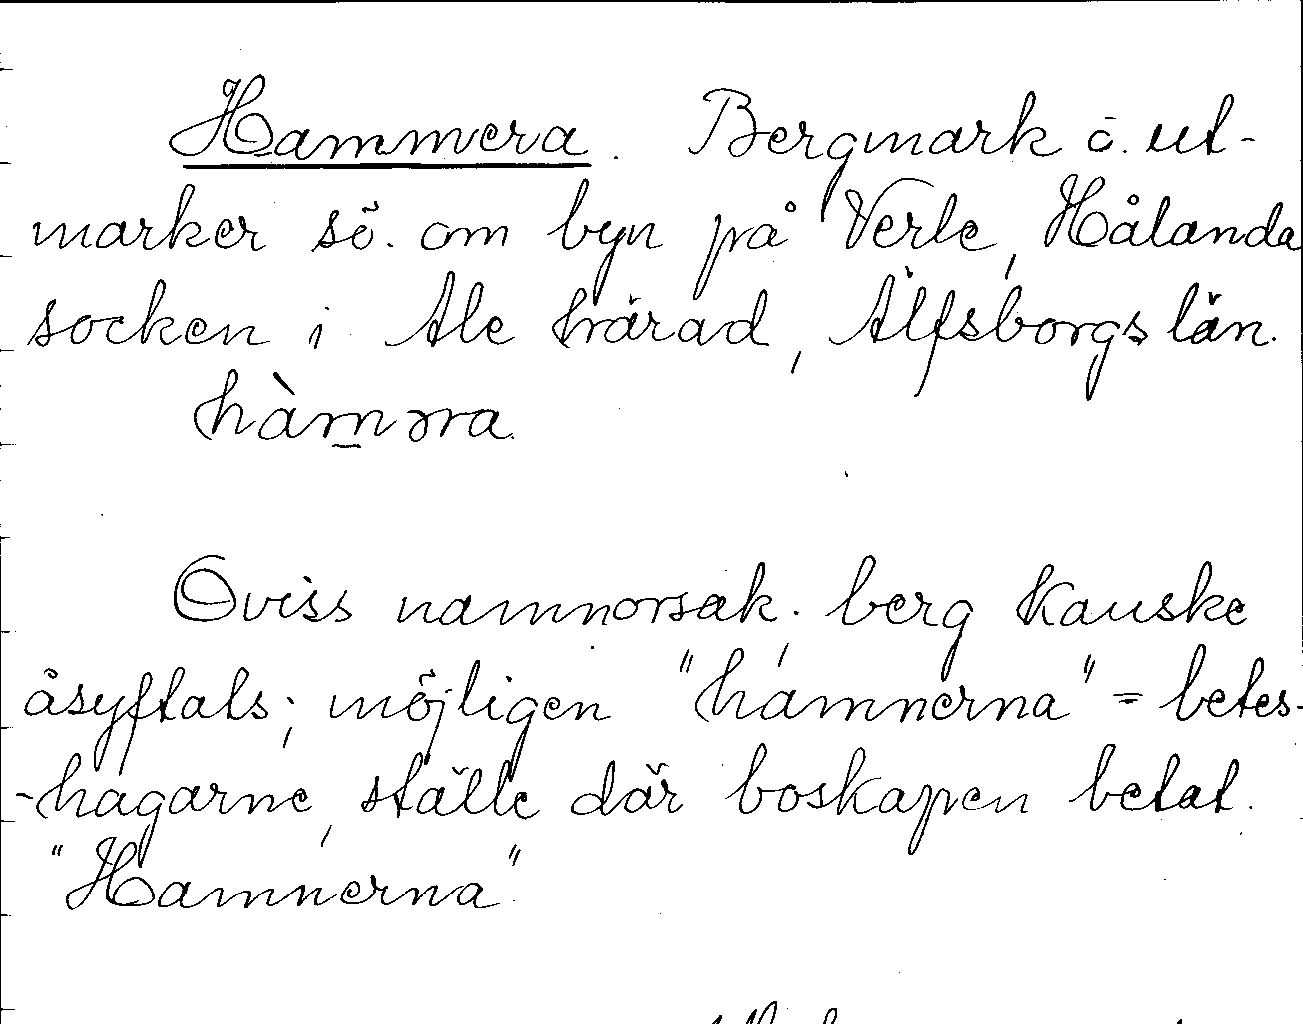 Hammera. Bergmark ö. ut-
marker sö. om byn på Verle, Hålanda
socken i Ale härad, Älfsborgs län.
hàm̲ərra.
Oviss namnorsak. berg kanske
åsyftats; möjligen "hamnerna" = betes-
-hagarne, ställe där boskapen betat.
"Hamnerna".